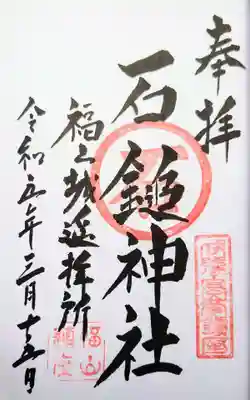 奉拝
石鎚神社
福山城遥拝所
令和五年三月十五日
福山